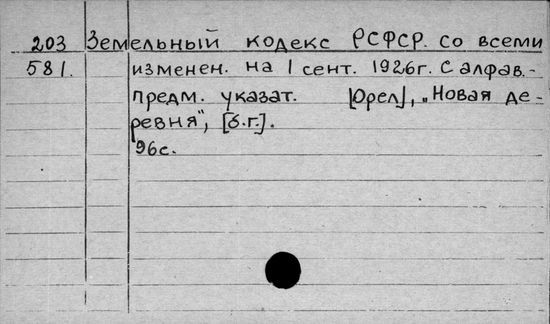 203 Земельный кодекс РСФСР. со всеми
581. изменен. на 1 сент. 1926г. С алфав.-
предм. указат. [Орел], „Новая де-
ревня", [б.г.].
96с.